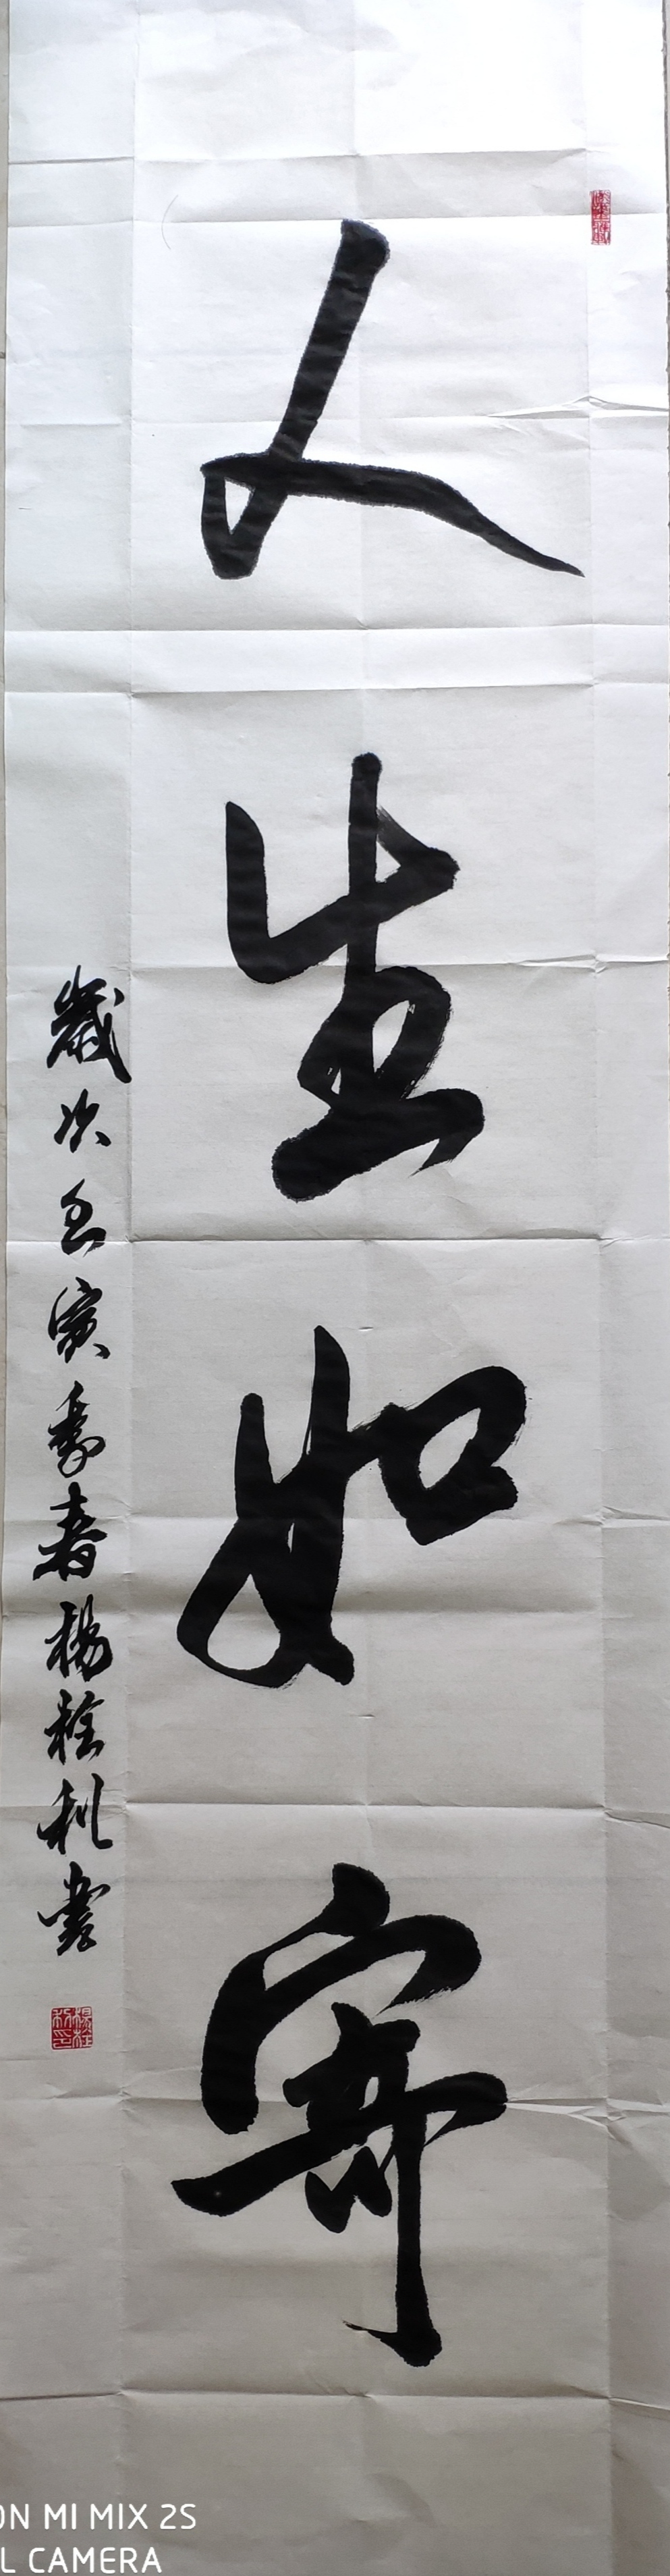 人生如寄
歲次壬寅季春楊栓利書
ON MI MIX 2S
L CAMERA